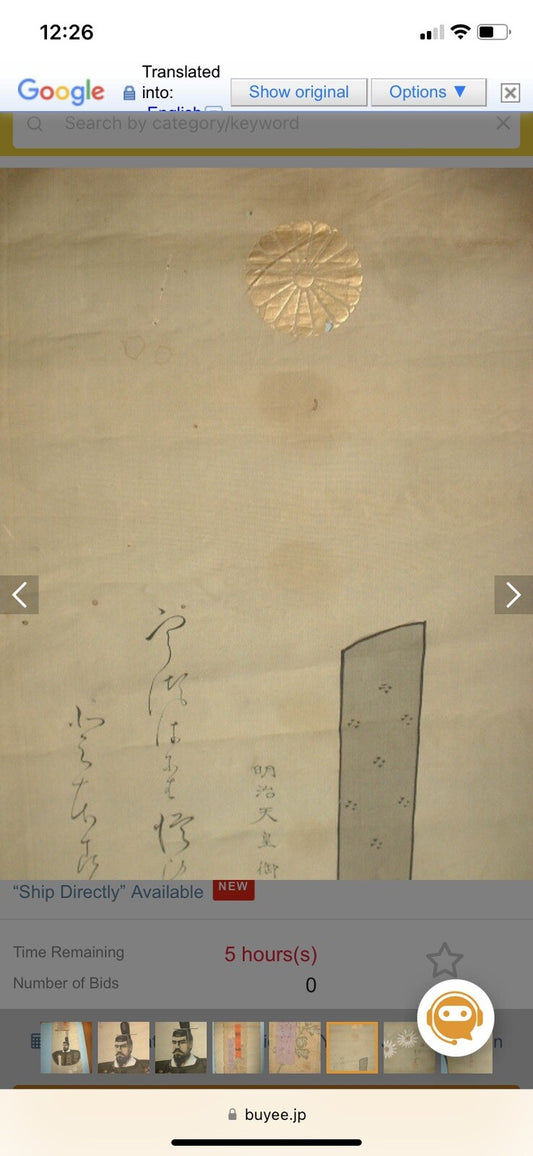 12:26
Google
Translated
into:
English
Show original
Options ▼
Search by category/keyword
明治天皇御
"Ship Directly" Available
NEW
Time Remaining
5 hours(s)
Number of Bids
0
n
buyee.jp